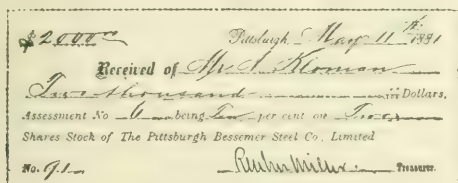 $2000.00 Pittsburgh, May 11th 1881
Received of Mr A Kloman
Two thousand Dollars,
Assessment No 6 being Ten per cent on Two
Shares Stock of The Pittsburgh Bessemer Steel Co., Limited
No. 91 Reuben Miller Treasurer.